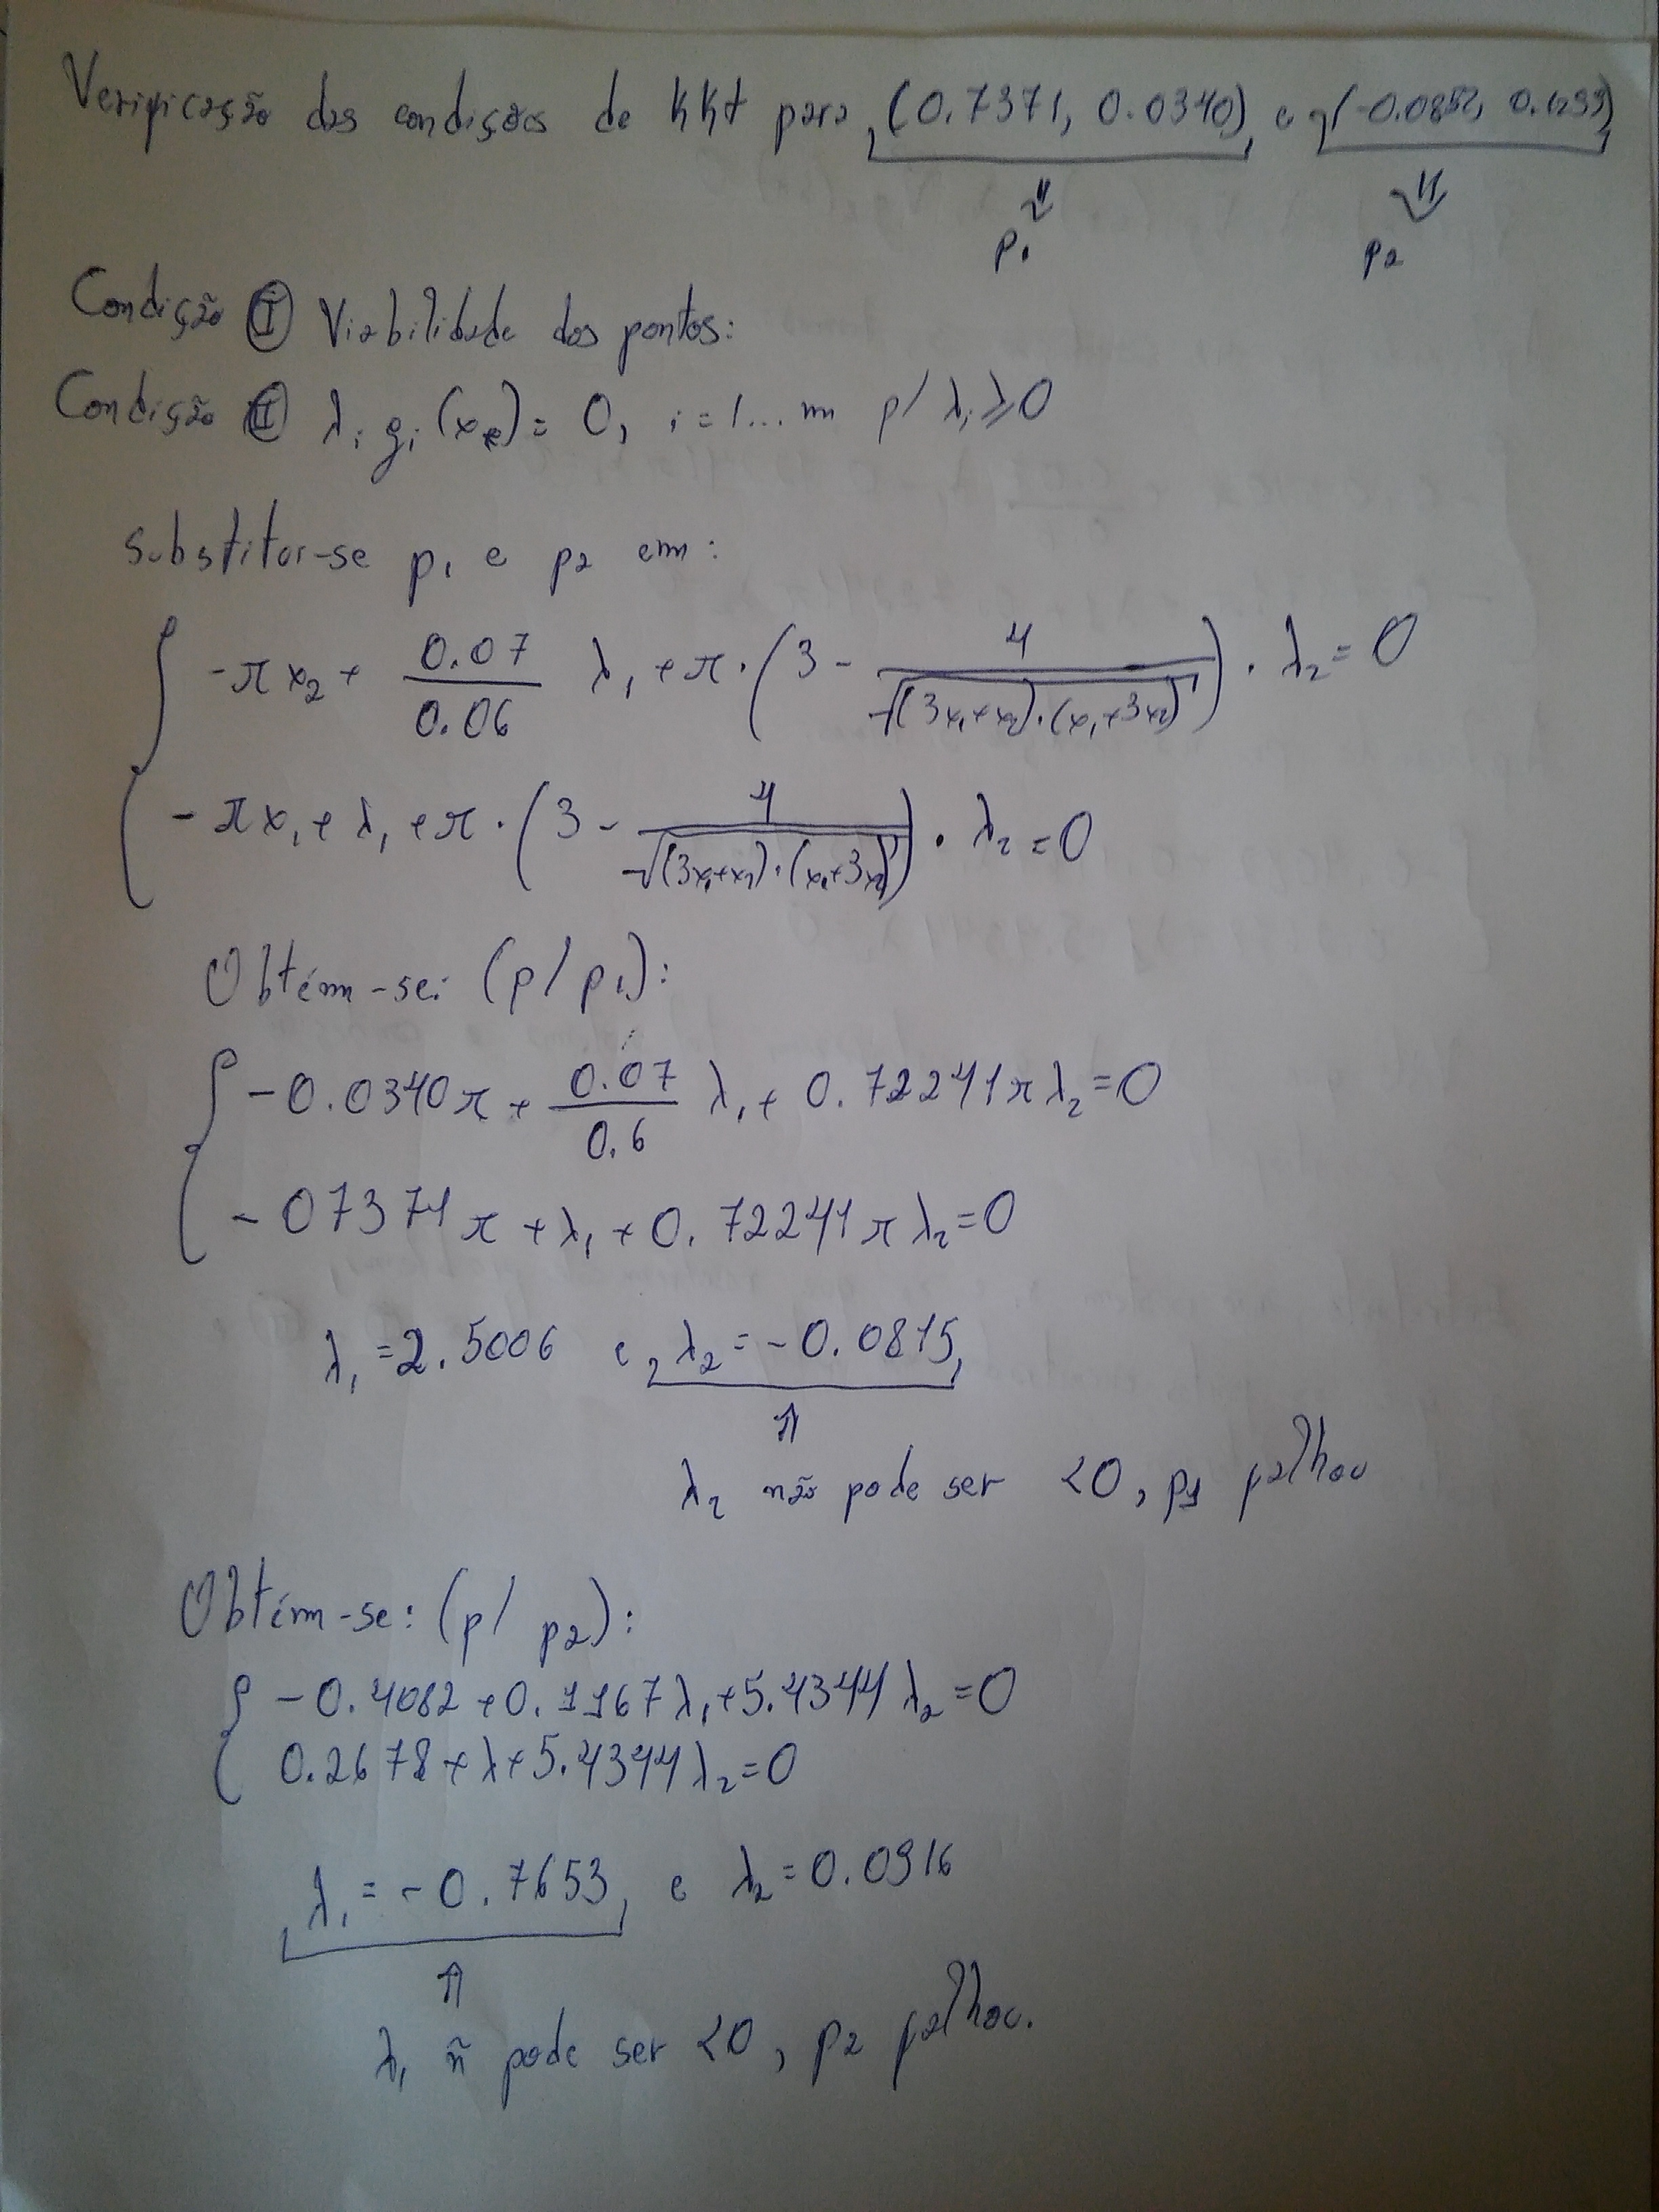 Verificação das condições de KKT para (0.7371, 0.0340) e (-0.0852, 0.1299)
p1 p2
Condição I Viabilidade dos pontos:
Condição II λi gi(x*) = 0, i = 1... m p/ λi ≥ 0
Substituir-se p1 e p2 em:
-πx2 + 0.07/0.06 λ1 + π·(3 - 4/√((3x1+x2)·(x1+3x2)))·λ2 = 0
-πx1 + λ1 + π·(3 - 4/√((3x1+x2)·(x1+3x2)))·λ2 = 0
Obtém-se: (p/ p1):
-0.0340π + 0.07/0.6 λ1 + 0.72241πλ2 = 0
-07371π + λ1 + 0.72241πλ2 = 0
λ1 = 2.5006 e λ2 = -0.0815
λ2 não pode ser <0, p1 falhou
Obtém-se: (p/ p2):
-0.4082 + 0.1167λ1 + 5.4344λ2 = 0
0.2678 + λ + 5.4344λ2 = 0
λ1 = -0.7653 e λ2 = 0.0916
λ1 ñ pode ser <0, p2 falhou.